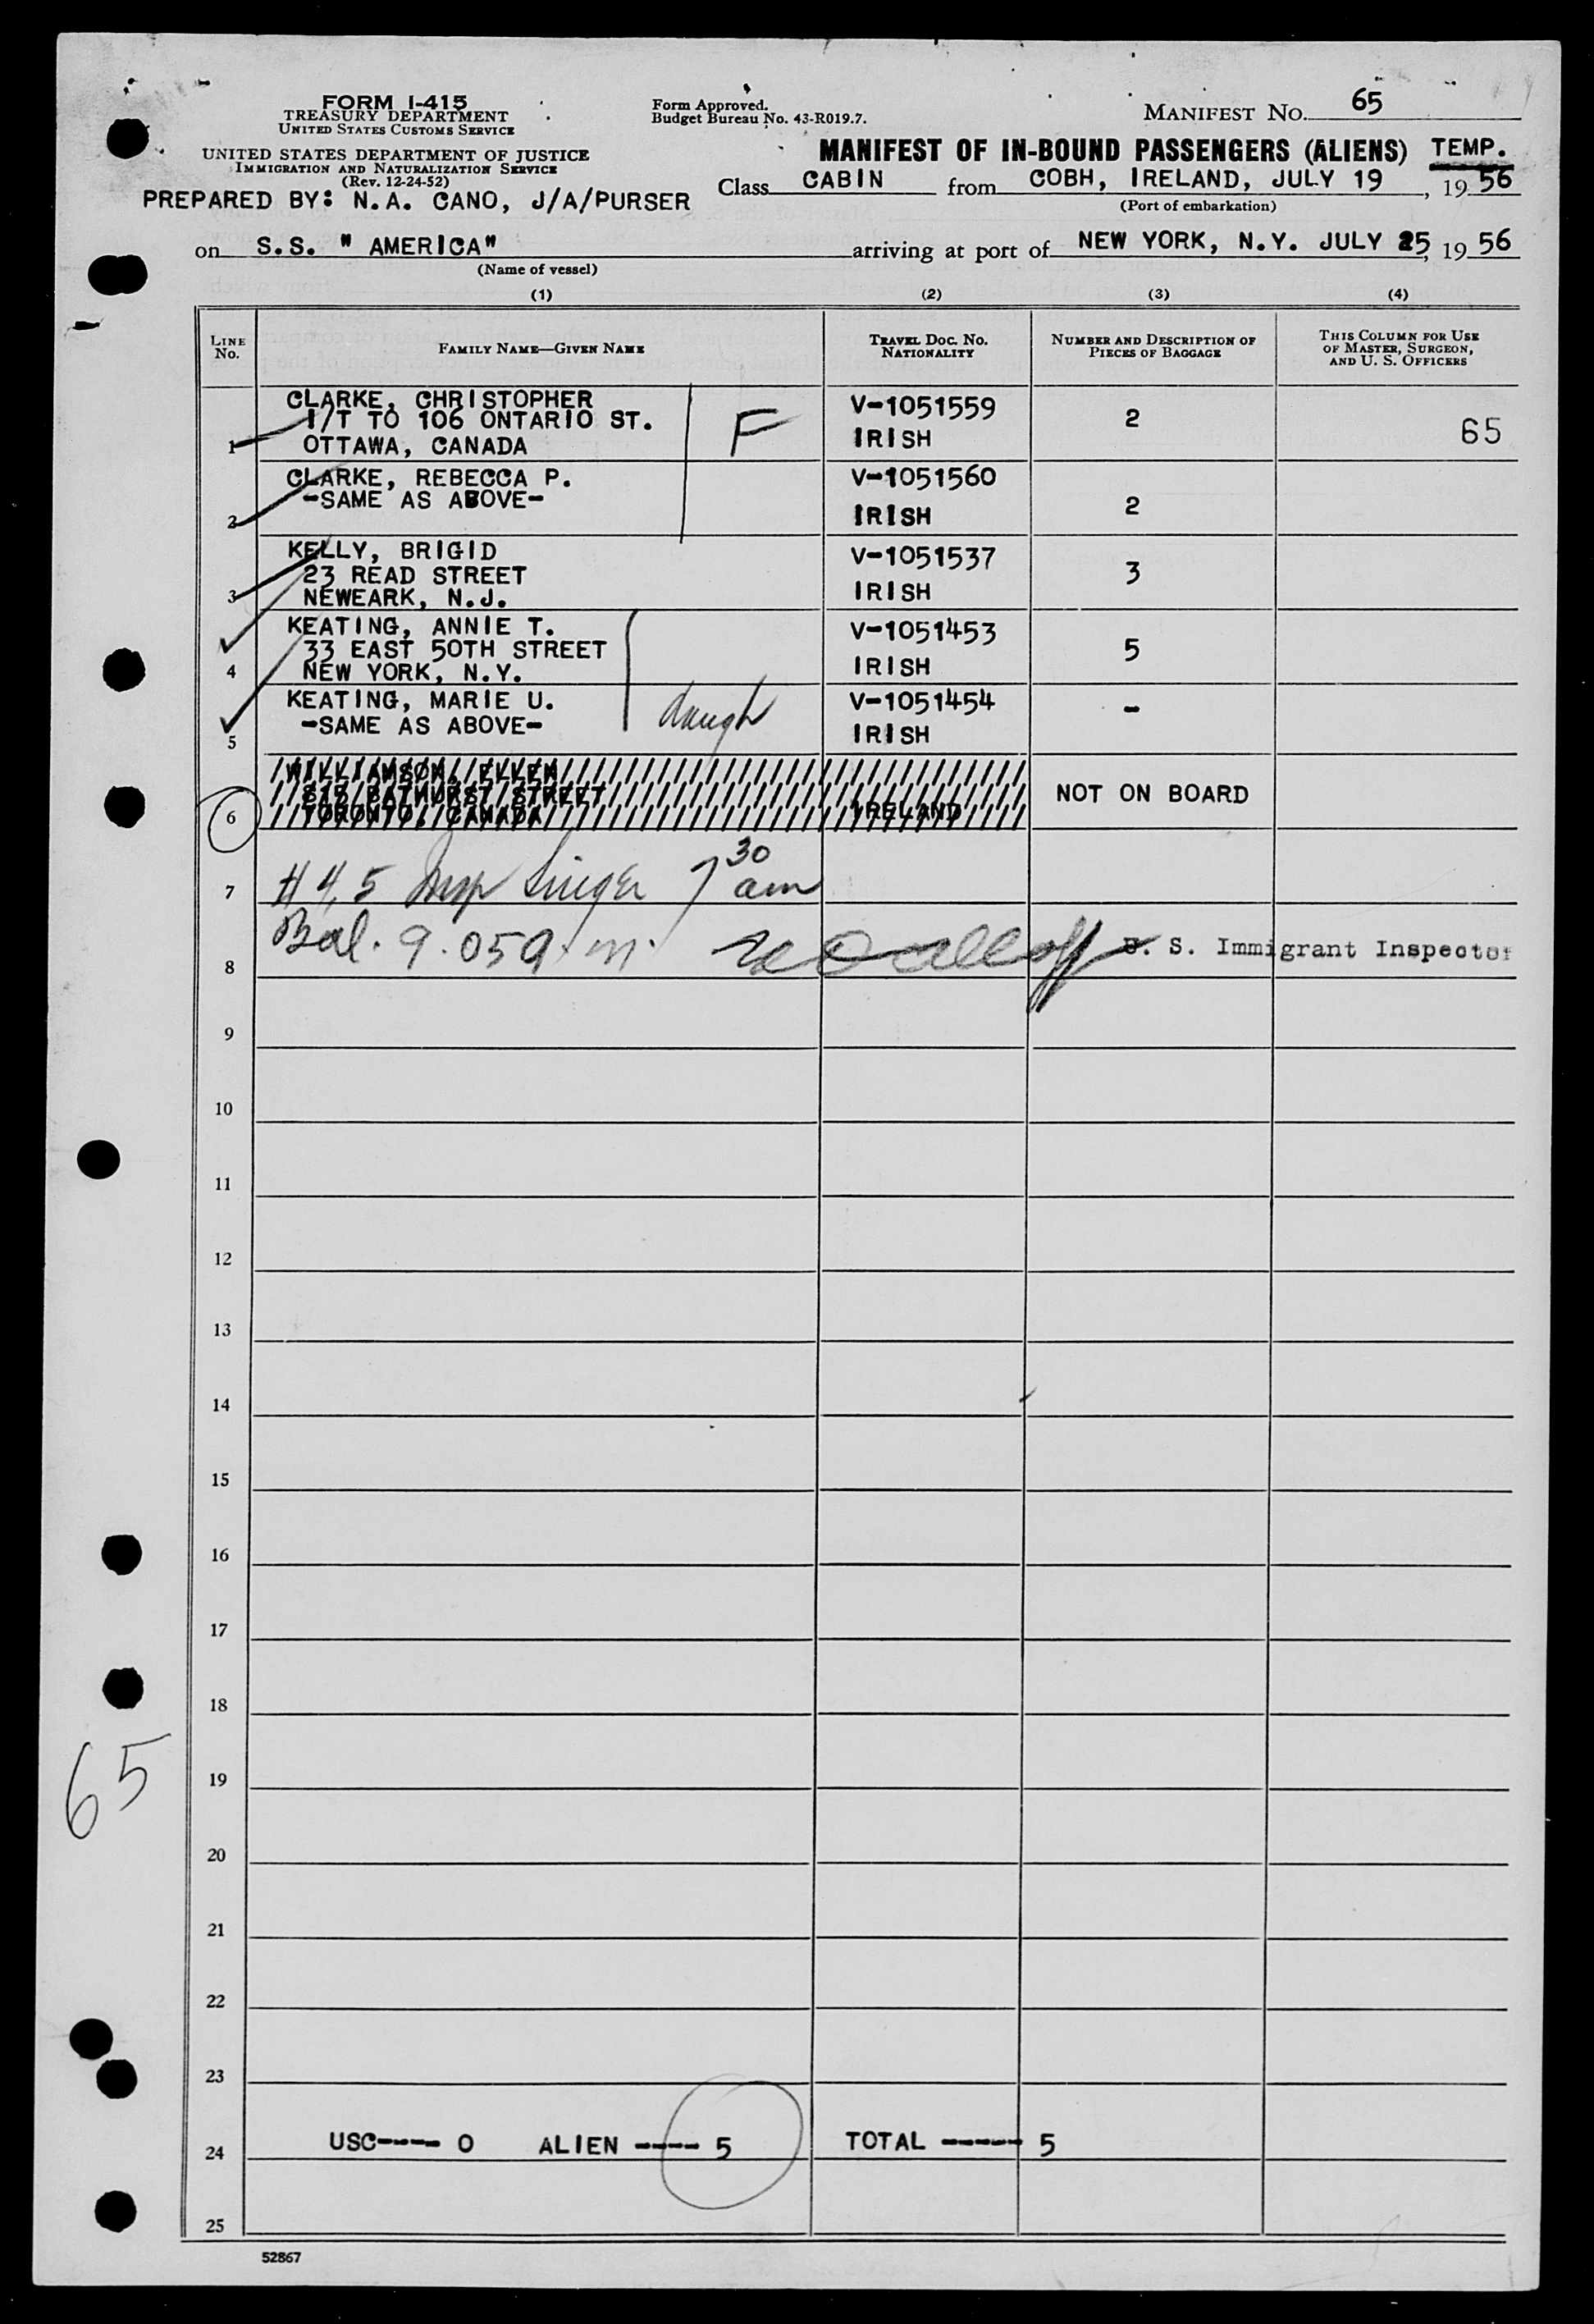 FORM I-415
TREASURY DEPARTMENT
UNITED STATES CUSTOMS SERVICE
UNITED STATES DEPARTMENT OF JUSTICE
IMMIGRATION AND NATURALIZATION SERVICE
(Rev. 12-24-52)
PREPARED BY: N.A. CANO, J/A/PURSER
Form Approved.
Budget Bureau No. 43-R019.7.
MANIFEST NO. 65
MANIFEST OF IN-BOUND PASSENGERS (ALIENS) TEMP.
Class CABIN from COBH, IRELAND, JULY 19, 19 56
(Port of embarkation)
on S.S. " AMERICA" arriving at port of NEW YORK, N.Y. JULY 25, 19 56
(Name of vessel)
(1) (2) (3) (4)
LINE No. FAMILY NAME—GIVEN NAME TRAVEL DOC. NO. NATIONALITY NUMBER AND DESCRIPTION OF PIECES OF BAGGAGE THIS COLUMN FOR USE OF MASTER, SURGEON, AND U. S. OFFICERS
CLARKE, CHRISTOPHER V-1051559
I/T TO 106 ONTARIO ST. F 2
1 OTTAWA, CANADA IRISH 65
CLARKE, REBECCA P. V-1051560
-SAME AS ABOVE-
2 IRISH 2
KELLY, BRIGID V-1051537
23 READ STREET 3
3 NEWEARK, N.J. IRISH
KEATING, ANNIE T. V-1051453
33 EAST 50TH STREET 5
4 NEW YORK, N.Y. IRISH
KEATING, MARIE U. V-1051454 -
-SAME AS ABOVE- daugh
5 IRISH
WILLIAMSON, ELLEN
BATHURST STREET NOT ON BOARD
6 TORONTO, CANADA IRELAND
7 # 4,5 Insp Singer 7 30 am
8 Bal. 9.05 a.m. U. S. Immigrant Inspector
9
10
11
12
13
14
15
16
17
18
65
19
20
21
22
23
24 USC---- 0 ALIEN ---- 5 TOTAL ----- 5
25
52867